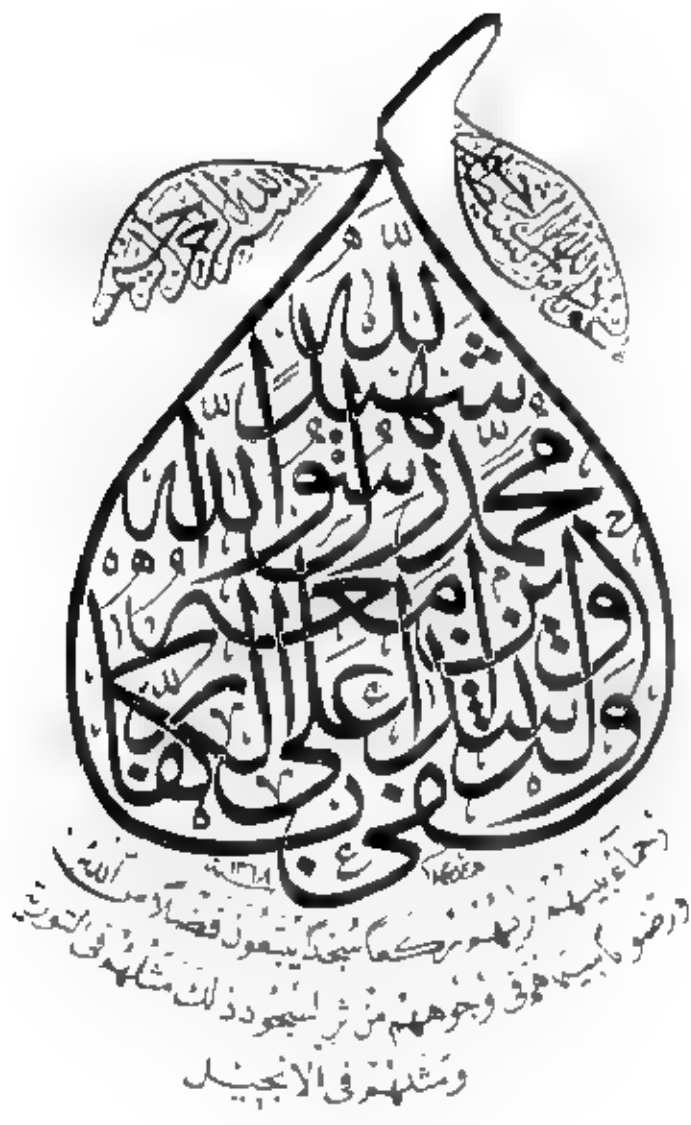 بسم الله الرحمن الرحيم
لله
شهيدا
محمد رسول الله
والذين معه
أشداء على الكفار
١٣٦٨
رحماء بينهم تريهم ركعا سجدا يبتغون فضلا من الله
ورضوانا سيماهم فى وجوههم من اثر السجود ذلك مثلهم فى التورية
ومثلهم فى الانجيل